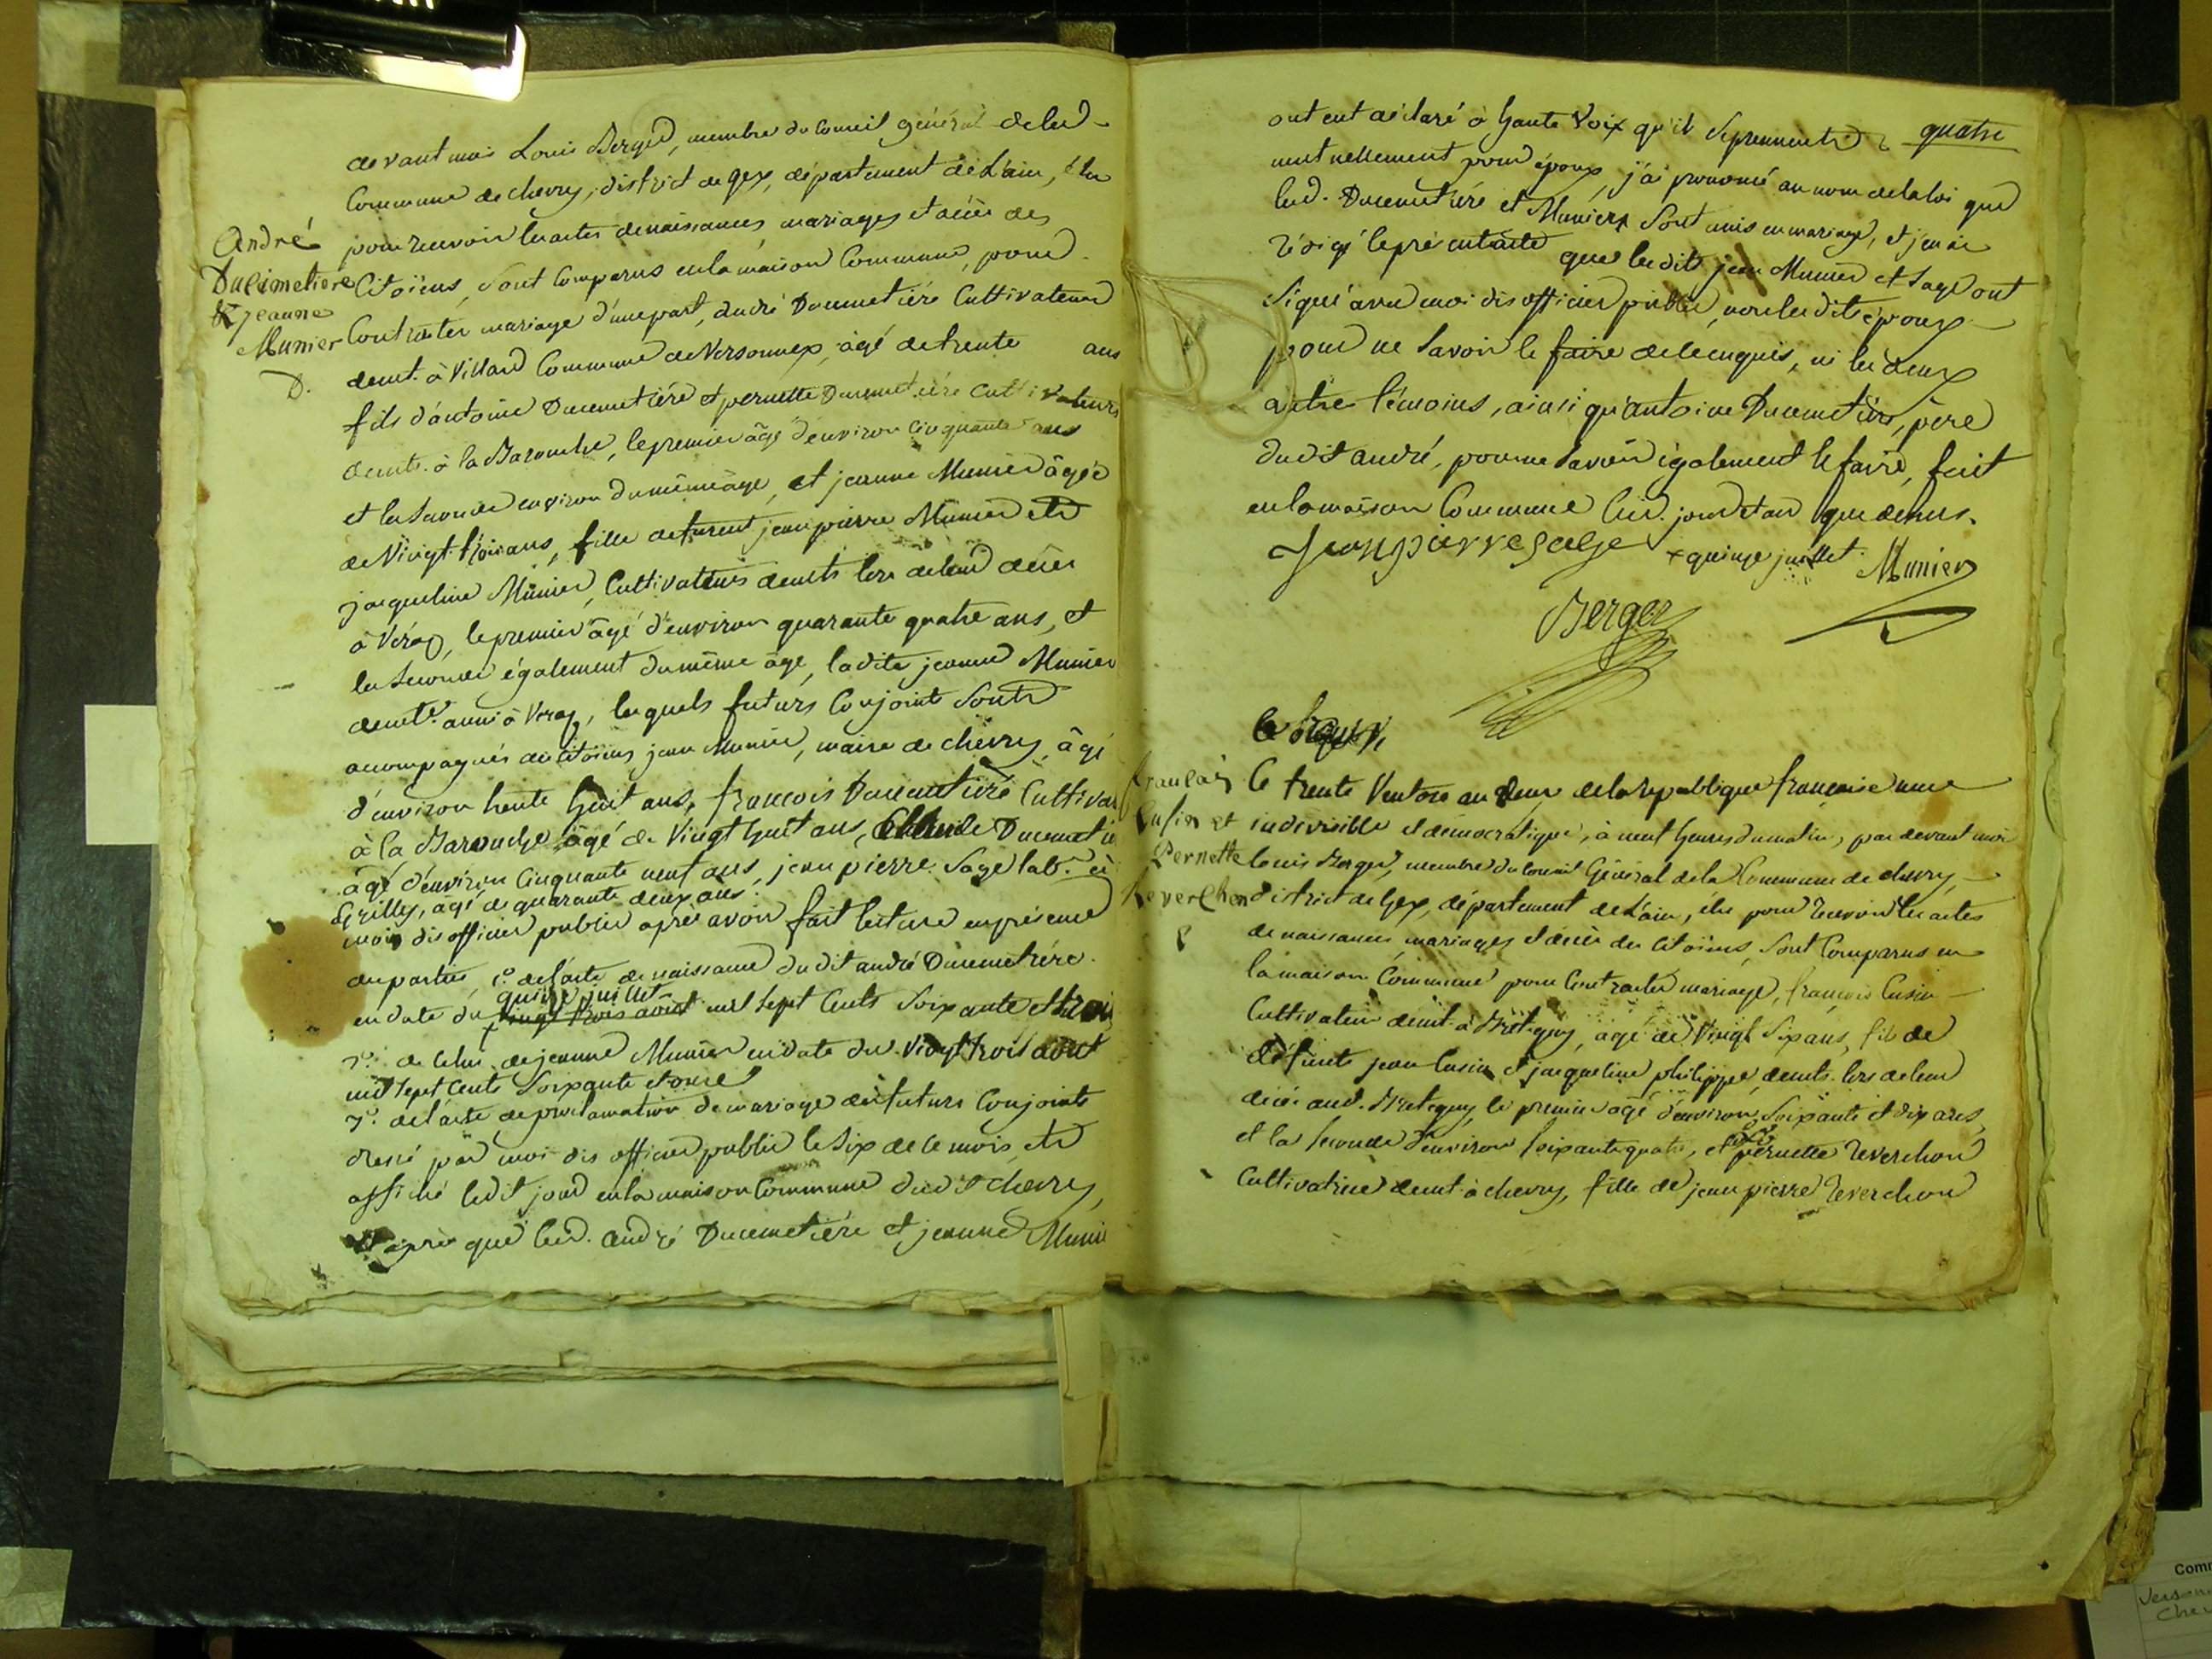 devant moi Louis Berger, membre du Conseil général de lad.
Commune de chevry, district de gex, département de L'ain, élu
pour recevoir les actes de naissances, mariages et décès des
André
Ducimetiere
& jeanne
Munier
D.
Citoïens, sont Comparus en la maison Commune, pour
Contracter mariage d'une part, andré Ducemetiére Cultivateur
demt. à Villard Commune de Versonnex, âgé de trente ans
fils d'antoine Ducemetiére et pernette Ducemetiére Cultivateurs
demts. à la Baronche, le premier âgé d'environ Cinquante ans
et la seconde environ du même âge, et jeanne Munier âgée
de Vingt-trois ans, fille de furent jean pierre Munier et
jacqueline Munier, Cultivateurs demts lors de leur décès
à Véraz, le premier âgé d'environ quarante quatre ans, et
la seconde également du même âge, ladite jeanne Munier
demte. aussi à Veraz, lesquels futurs Conjoints sont
accompagnés des citoïens jean Munier, maire de chevry, âgé
d'environ trente huit ans, françois Ducemetiére Cultivat
à la Baronche âgé de Vingt huit ans, Claude Ducemetie
âgé d'environ Cinquante neuf ans, jean pierre Sage labr. à
Grilly, âgé de quarante deux ans.
moi dis officier public après avoir fait lecture en présence
des parties, 1°. de l'acte de naissance dudit andré Ducemetiére
quinze juillet
en date du vingt trois août mil sept Cents soixante et trois
2°. de Celui de jeanne Munier en date du vingt trois août
mil sept Cents soixante et onze
3°. de l'acte de proclamation de mariage des futurs Conjoints
dressé par moi dis officier public le six de ce mois, et
affiché ledit jour en la maison Commune dudit chevry,
et après que led. andré Ducemetiére et jeanne Munie
quatre
ont eut déclaré à haute Voix qu'ils se prennent
mutuellement pour époux, j'ai prononcé au nom de la loi que
led. Ducemetiére et Munier sont unis en mariage, et j'en ai
rédigé le présent acte que lesdits jean Munier et Sage ont
signé avec moi dis officier public, non lesdits époux
pour ne savoir le faire de ce enquis, ni les deux
autre témoins, ainsi qu'antoine Ducemetiére, père
dudit andré, pour ne savoir également le faire, fait
en la maison Commune lesd. jour et an que dessus.
Jean pierre sage
x quinze juillet. Munier
Berger
françois
Cusin et
Pernette
Reverchon
Ce trente Ventose an deux de la republique française une
indivisible et démocratique, à neuf heures du matin, par devant moi
louis Berger, membre du Conseil Général de la Commune de chevry,
district de Gex, département de L'ain, élu pour recevoir les actes
de naissances, mariages et décès des Citoïens, sont Comparus en
la maison Commune pour Contracter mariage, françois Cusin
Cultivateur demt. à Brétigny, âgé de Vingt Six ans, fils de
défunts jean Cusin et jacqueline philippe, demts. lors de leur
décès aud. Bretigny, le premier âgé d'environ soixante et dix ans,
et la seconde d'environ soixante quatre, et pernette Reverchon
Cultivatrice demt. à chevry, fille de jean pierre Reverchon
Comm
Verson
Chev